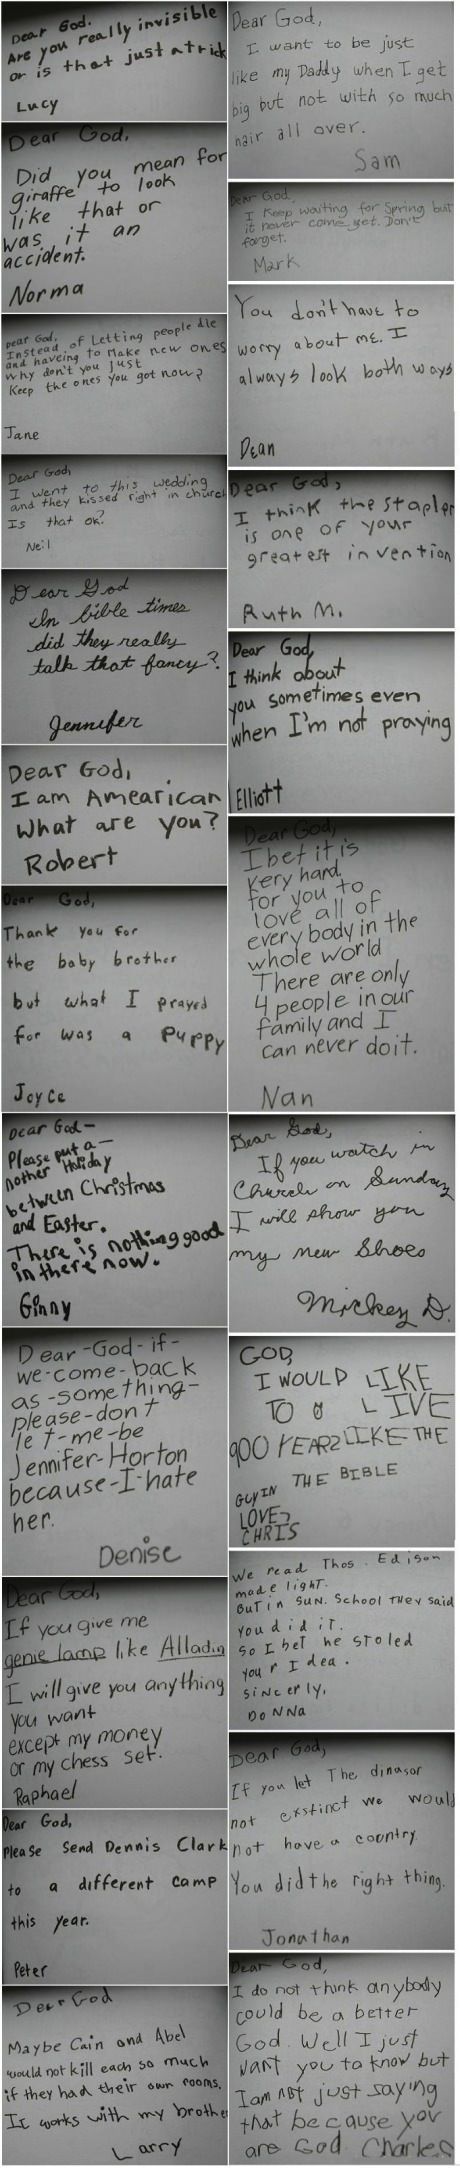 Dear God.
Are you really invisible
or is that just a trick
Lucy
Dear God,
Did you mean for
giraffe to look
like that or
was it an
accident.
Norma
Dear God,
Instead of Letting people die
and haveing to Make new ones
why don't you Just
Keep the ones you got now?
Jane
Dear God,
I went to this wedding
and they kissed right in church
Is that ok?
Neil
Dear God
In bible times
did they really
talk that fancy?
Jennifer
Dear God,
I am Amearican
What are you?
Robert
Dear God,
Thank you for
the baby brother
but what I prayed
for was a puppy
Joyce
Dear God—
Please put a—
nother Holiday
between Christmas
and Easter.
There is nothing good
in there now.
Ginny
Dear-God-if-
we-come-back
as-something-
please-don't
let-me-be
Jennifer-Horton
because-I-hate
her.
Denise
Dear God,
If you give me
genie lamp like Alladin
I will give you anything
you want
except my money
or my chess set.
Raphael
Dear God,
Please Send Dennis Clark
to a different camp
this year.
Peter
Dear God
Maybe Cain and Abel
would not kill each so much
if they had their own rooms.
It works with my brothe
Larry
Dear God,
I want to be just
like my Daddy when I get
big but not with so much
hair all over.
Sam
Dear God,
I Keep waiting for Spring but
it never come yet. Don't
forget.
Mark
You don't have to
worry about me. I
always look both ways
Dean
Dear God,
I think the stapler
is one of your
greatest invention
Ruth M.
Dear God,
I think about
you sometimes even
when I'm not praying
Elliott
Dear God,
I bet it is
very hard
for you to
love all of
every body in the
whole world
There are only
4 people in our
family and I
can never do it.
Nan
Dear God,
If you watch in
Church on Sunday
I will show you
my new Shoes
Mickey D.
GOD,
I WOULD LIKE
TO LIVE
900 YEARS LIKE THE
GUY IN THE BIBLE
LOVE,
CHRIS
We read Thos. Edison
made light.
But in SUN. School THey said
you did it.
So I bet he stoled
your Idea.
Sincerly,
DONNA
Dear God,
If you let The dinasor
not exstinct we would
not have a country.
You did the right thing.
Jonathan
Dear God,
I do not think anybody
could be a better
God. Well I just
want you to know but
I am not just saying
that because you
are God. Charles